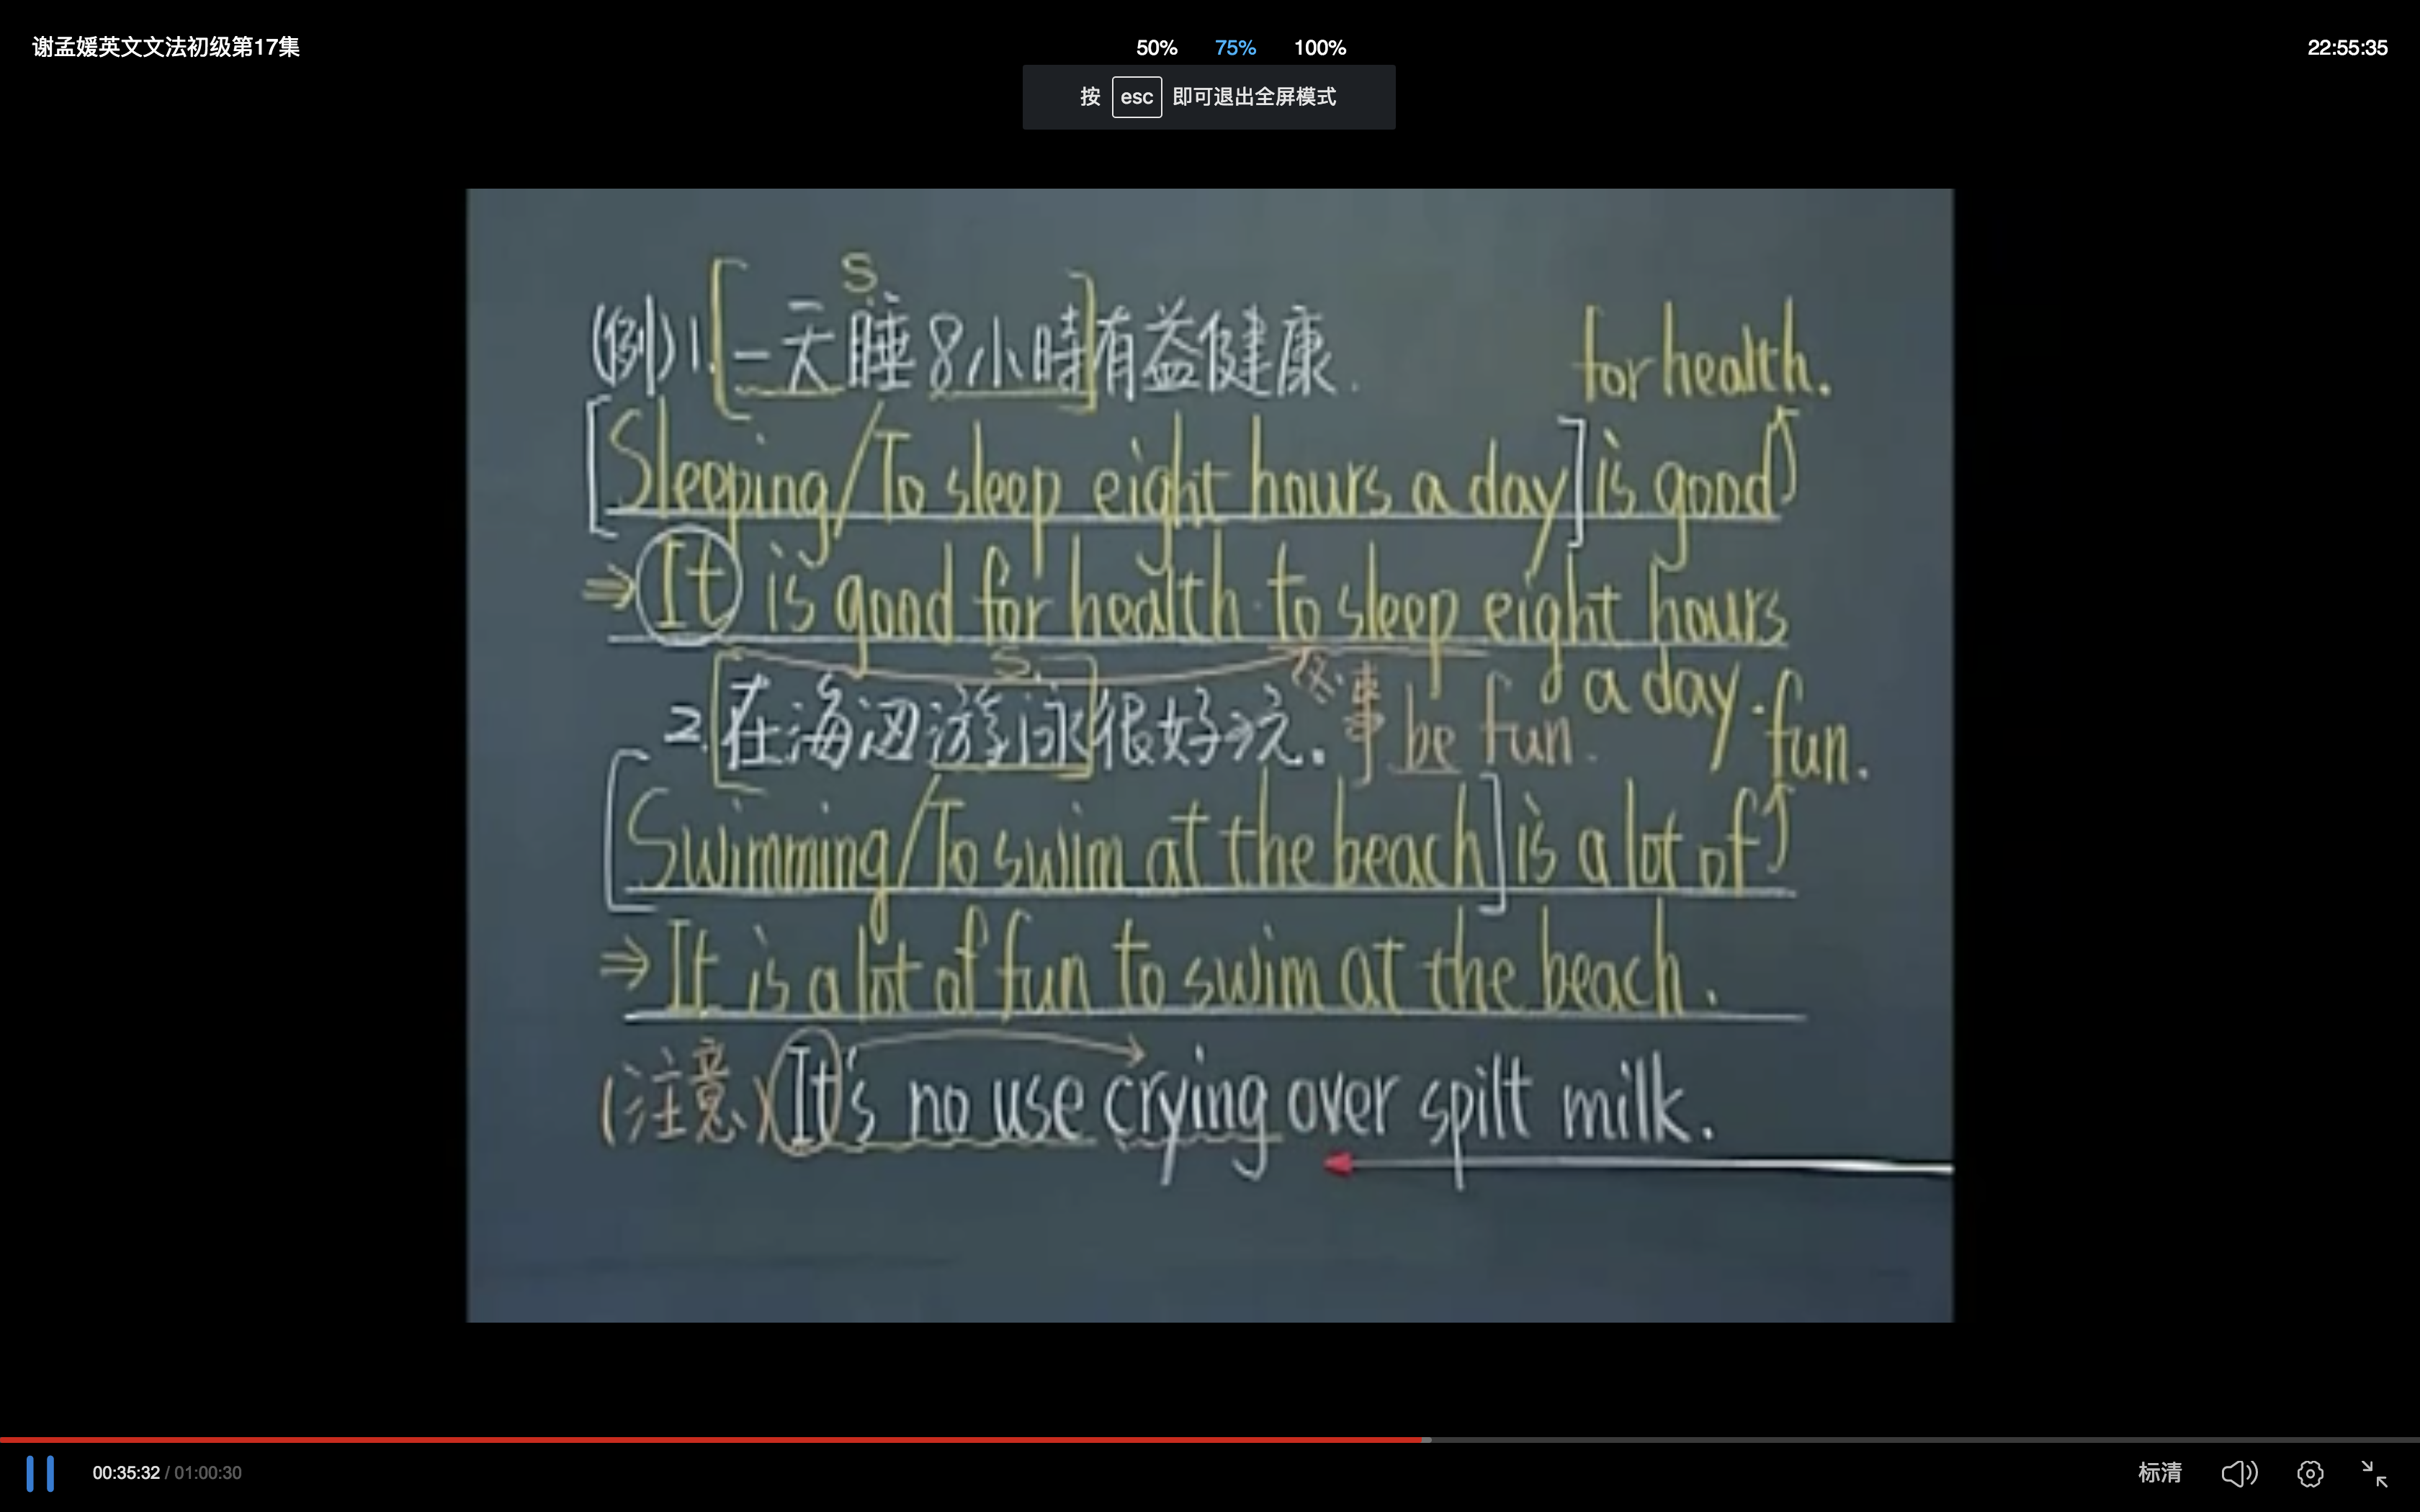 谢孟媛英文文法初级第17集
50% 75% 100%
22:55:35
按 esc 即可退出全屏模式
S.
(例)1.[一天睡8小時]有益健康. for health.
[Sleeping/To sleep eight hours a day] is good
⇒It is good for health to sleep eight hours
a day.
S.
2.[在海边游泳]很好玩. 事 be fun. fun.
[Swimming/To swim at the beach] is a lot of
⇒It is a lot of fun to swim at the beach.
(注意)It's no use crying over spilt milk.
00:35:32 / 01:00:30
标清